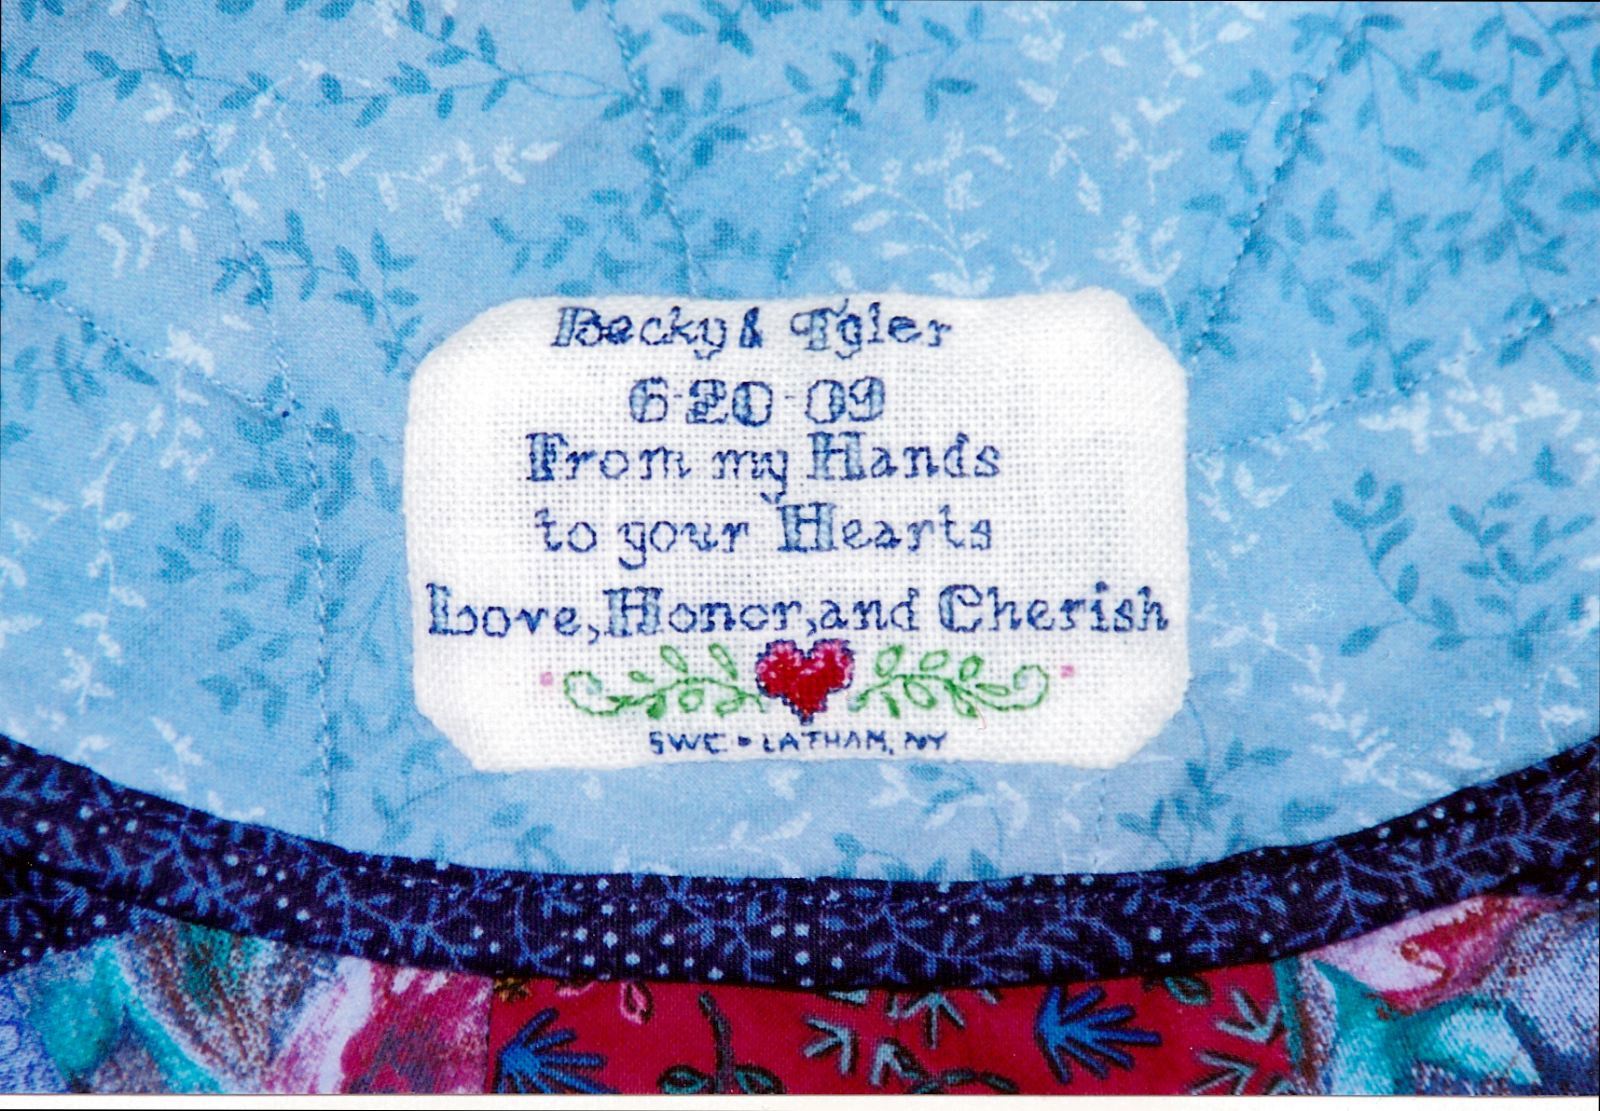 Becky & Tyler
6-20-09
From my Hands
to your Hearts
Love, Honor, and Cherish
SWE • LATHAM, NY